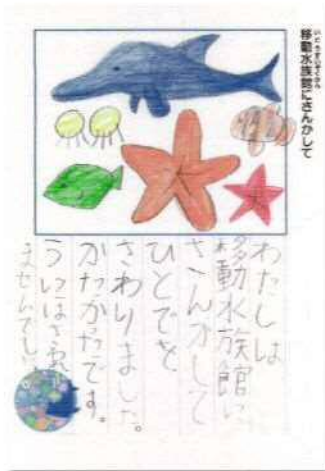 いどうすいぞくかん
移動水族館にさんかして
わたしは
移動水族館に
さんかして
ひとでを
さわりました。
かたかたです。
うにはさわ
ませんでし